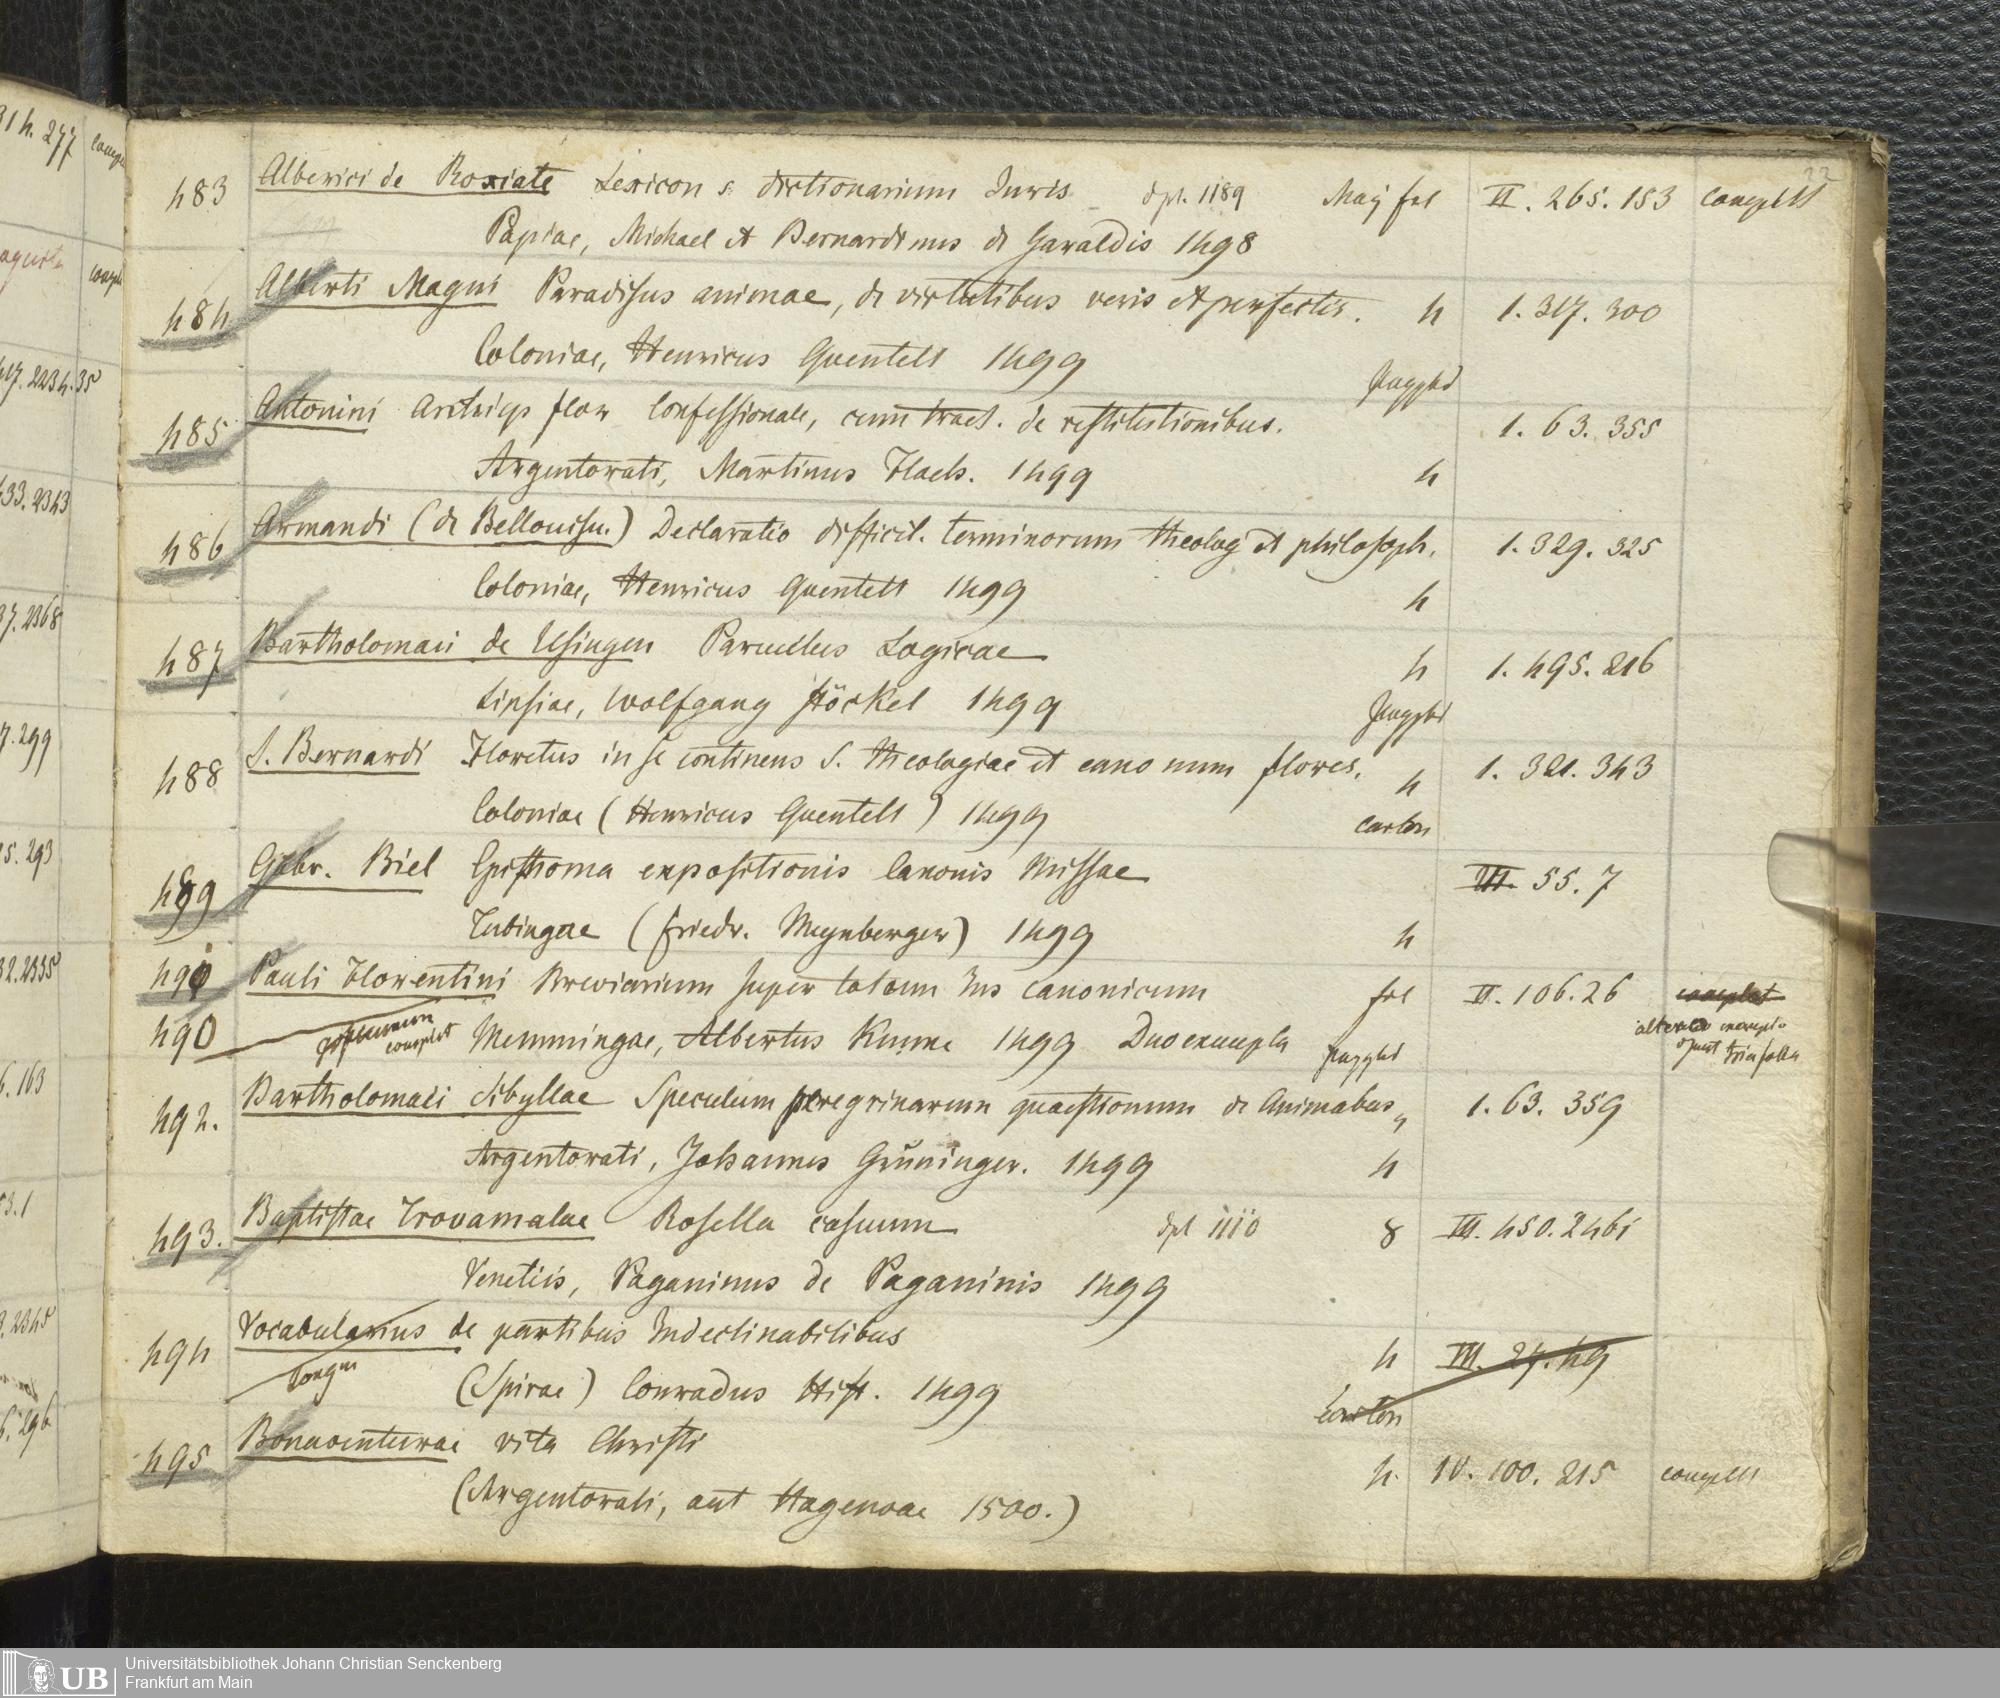 22
483 Alberici de Roxiate Lexicon s. dictionarium Iuris dpl. 1189 Maj fol II. 265. 153 complett
Papiae, Michael et Bernardinus de Garaldis 1498
484 Alberti Magni Paradisus animae, de virtutibus veris et perfectis. 4 1. 317. 300
Coloniae, Henricus Quentell 1499
485 Antonini Archieps flor Confessionale, cum tract. de restitutionibus. Pappbd 1. 63. 355
Argentorati, Martinus Flach. 1499 4
486 Armandi (de Bellouisu.) Declaratio difficil. terminorum theolog et philosoph. 1. 329. 325
Coloniae, Henricus Quentell 1499 4
487 Bartholomaei de Usingen Parvulus Logicae 4 1. 495. 216
Lipsiae, Wolfgang Stöckel 1499
Pappbd
488 S. Bernardi Floretus in se continens S. theologiae et canonum flores. 4 1. 321. 343
Coloniae (Henricus Quentell) 1499 Carton
489 Gabr. Biel Epithoma expositionis Canonis Missae III. 55. 7
Tubingae (Friedr. Meynberger) 1499 4
490 Pauli Florentini Breviarium super totum Ius canonicum fol II. 106. 26 complet
490 complet Memmingae, Albertus Kunne 1499 Duo exempla Pappbd
492. Bartholomaei Sibyllae Speculum peregrinarum quaestionum de Animabus 1. 63. 359
Argentorati, Johannes Grüninger. 1499 4
493. Baptistae Trovamalae Rosella casuum dpl 1110 8 III. 450. 2461
Venetiis, Paganinus de Paganinis 1499
494 Vocabularius de partibus Indeclinabilibus 4 III. 27. 49
(Spirae) Conradus Hist. 1499
Carton
495 Bonaventurae vita Christi 4. IV. 100. 215 complett
(Argentorati, aut Hagenoae 1500.)
UB
Universitätsbibliothek Johann Christian Senckenberg
Frankfurt am Main